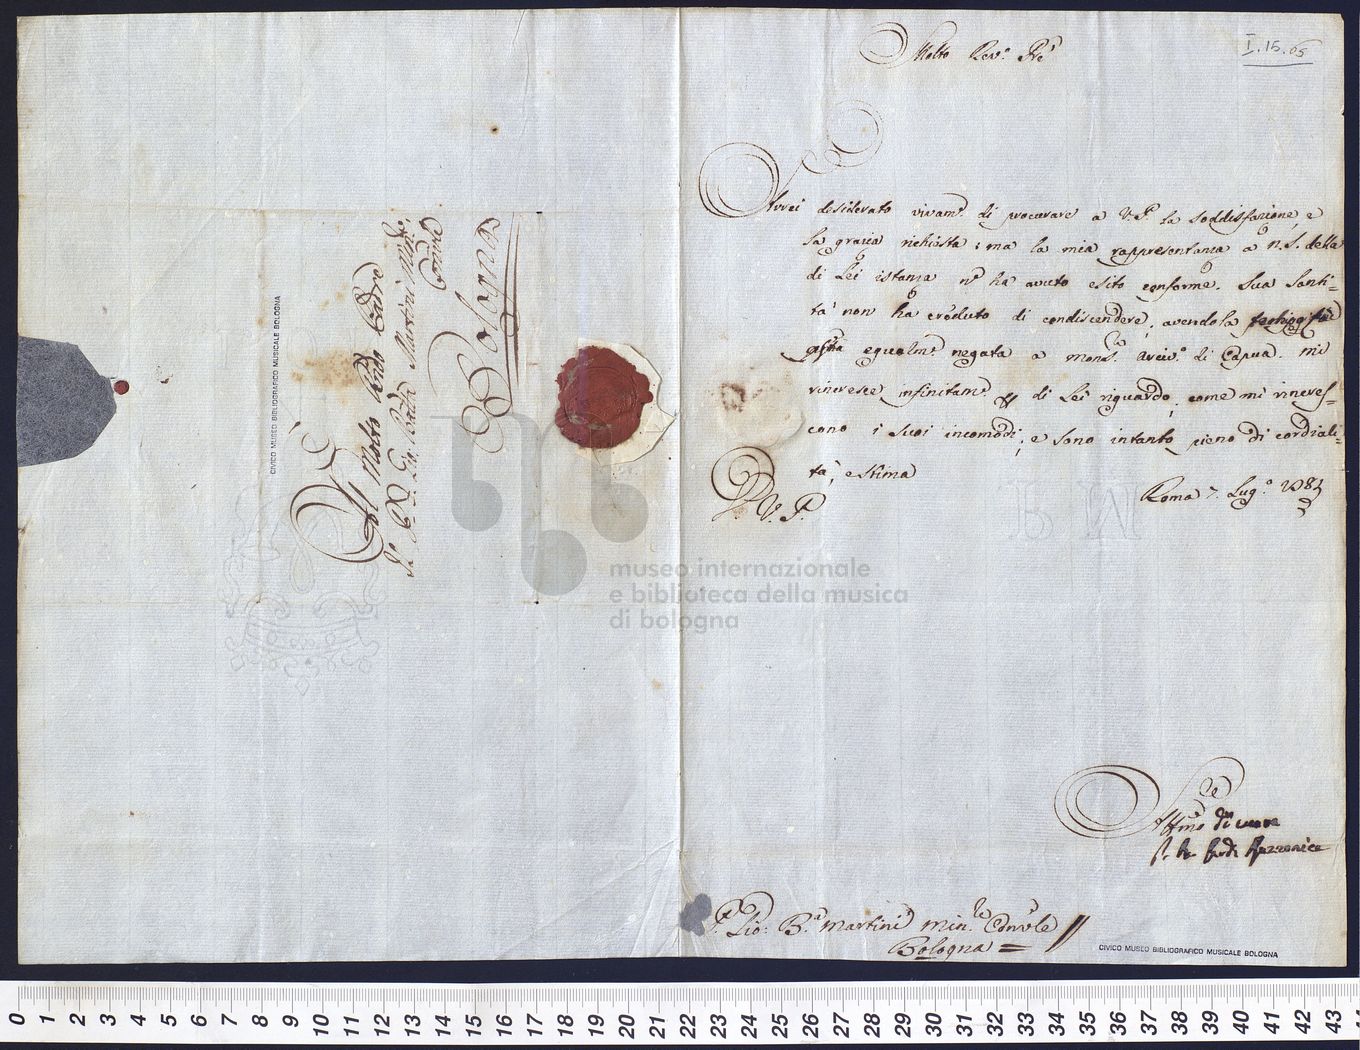 I. 15. 65
Molto Rev.º Pre
Avrei desiderato vivam.e di procurare a V. P. la soddisfazione, e
la grazia richiesta; ma la mia rappresentanza a N. S. della
di Lei istanza nō ha avuto esito conforme. Sua Santi=
tà non ha creduto di condiscendere, avendola
egualm.e negata a Mons.r Arciv.º di Capua. Mi
rincresce infinitam.e di Lei riguardo, come mi rincres=
cono i suoi incomodi, e sono intanto pieno di cordiali=
tà, e stima
D. V. P.
Roma 7. Lug.º 1784
Affmo di cuore
P. Gio: B.a Martini Min.le Convle
Bologna =
CIVICO MUSEO BIBLIOGRAFICO MUSICALE BOLOGNA
Al Molto Rndo Padre
Il P. Gio: Batta Martini Min.e
Convle
Bologna
CIVICO MUSEO BIBLIOGRAFICO MUSICALE BOLOGNA
museo internazionale
e biblioteca della musica
di bologna
0 1 2 3 4 5 6 7 8 9 10 11 12 13 14 15 16 17 18 19 20 21 22 23 24 25 26 27 28 29 30 31 32 33 34 35 36 37 38 39 40 41 42 43